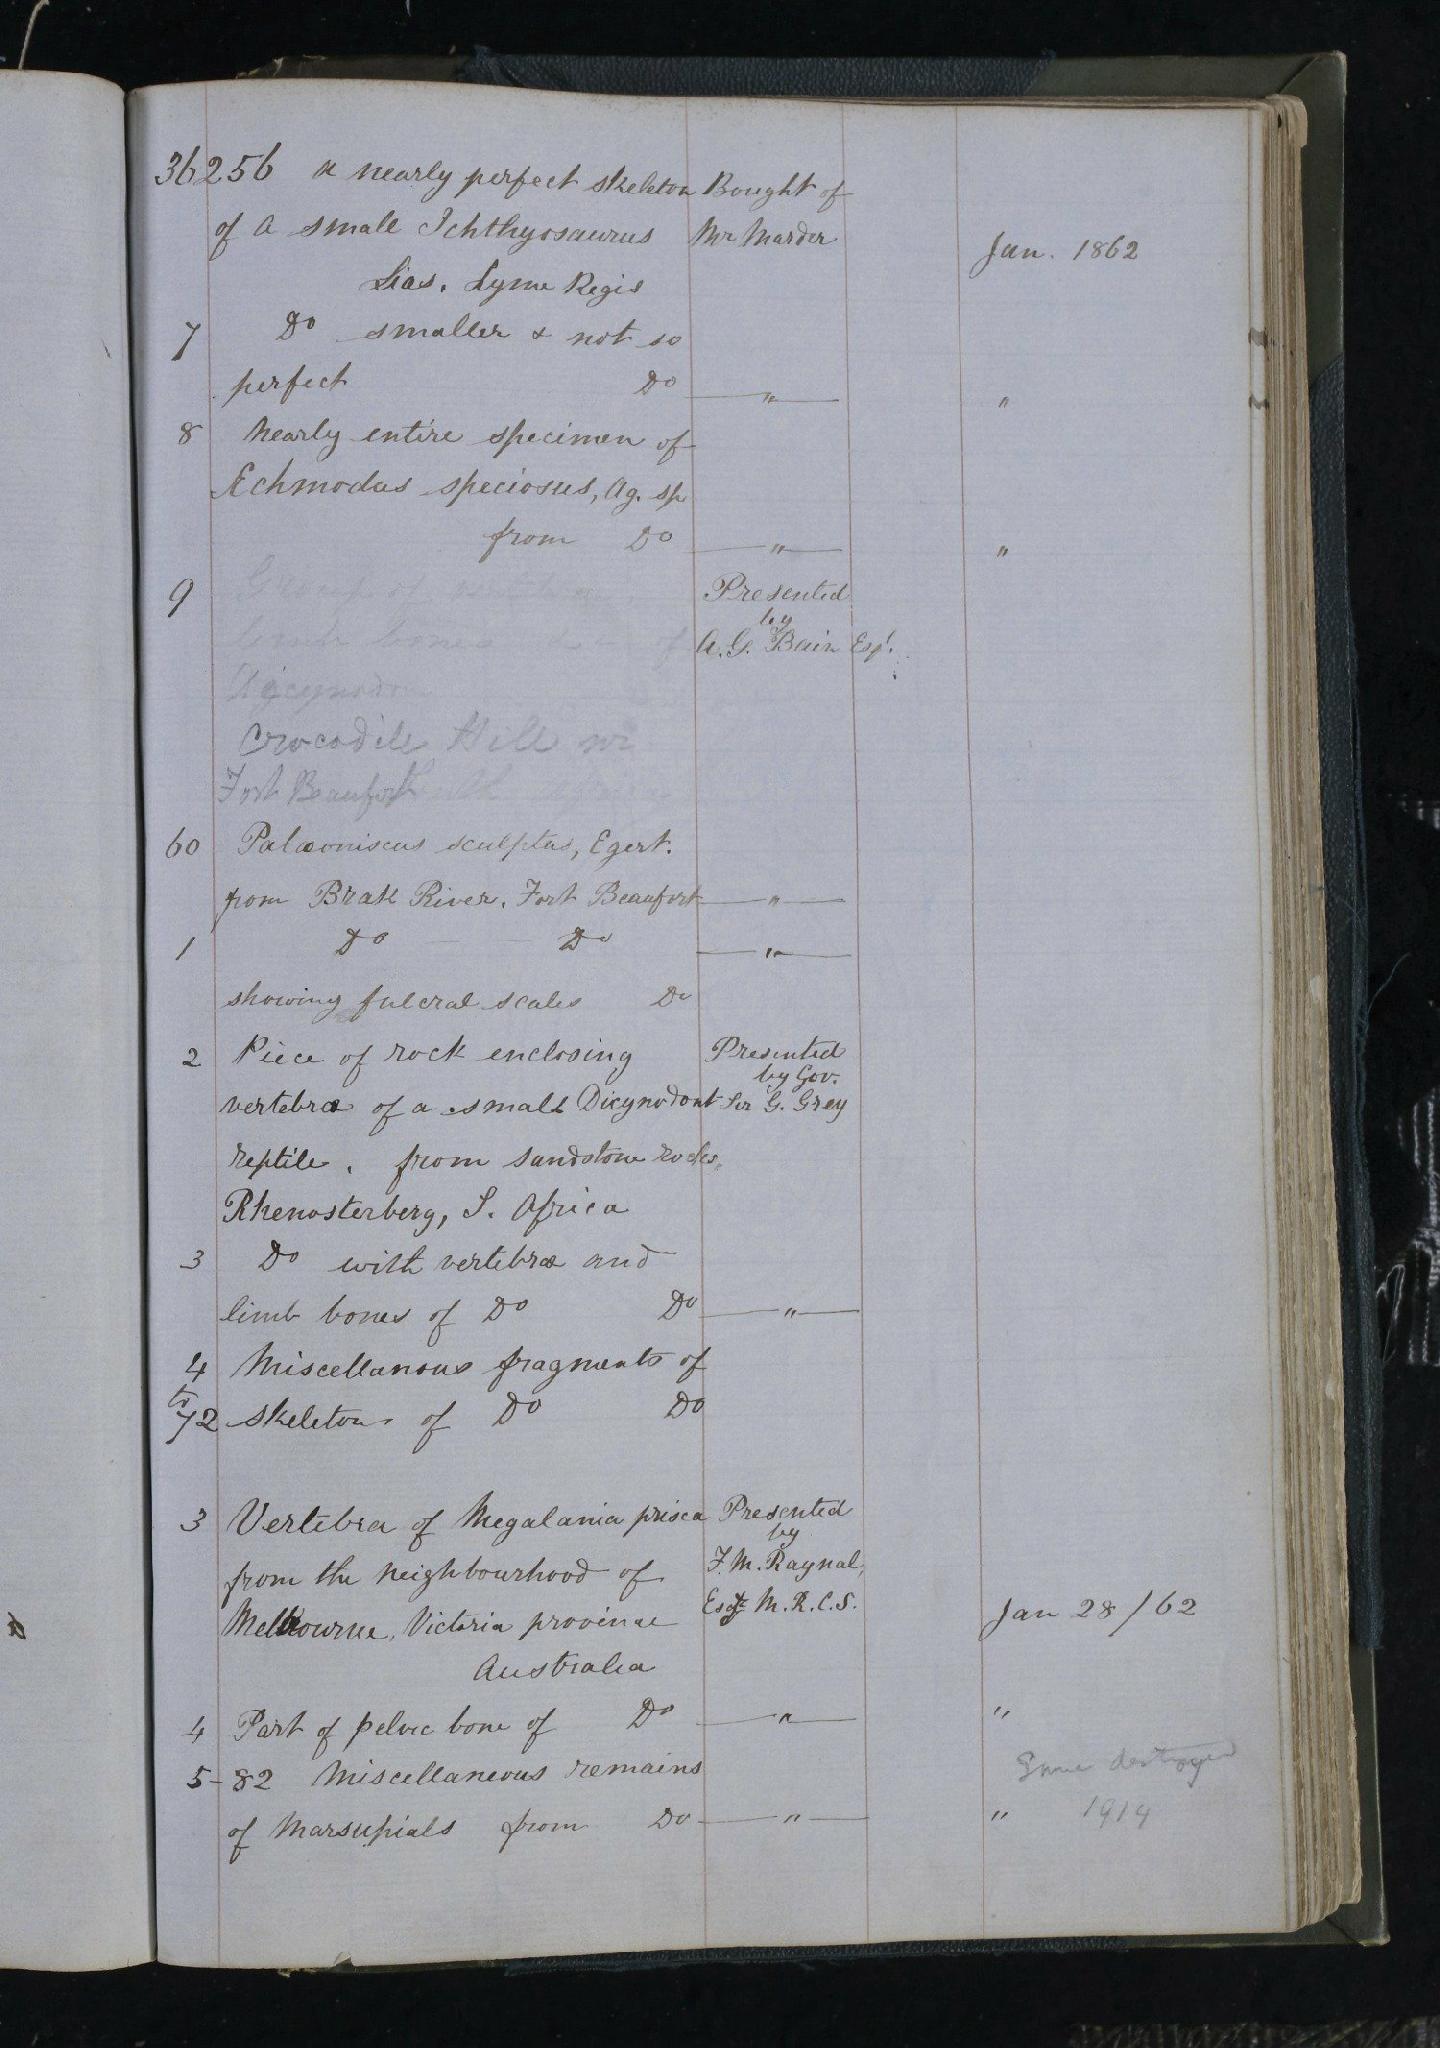 36256 A nearly perfect skeleton Bought of
of a small Ichthyosaurus Mr Marder Jan. 1862
Lias. Lyme Regis
7 Do smaller & not so
perfect Do " "
8 Nearly entire specimen of
Æchmodus speciosus, Ag. sp
from Do " "
9 Group of Presented
by
limb bones of A. G. Bain Esqr.
Dicynodon
Crocodile Hill nr
Fort Beaufort South Africa
60 Palæoniscus sculptus, Egert.
from Brak River, Fort Beaufort "
1 Do Do "
showing fulcral scales Do
2 Piece of rock enclosing Presented
by Gov.
vertebræ of a small Dicynodont Sir G. Grey
reptile. from sandstone rocks,
Rhenosterberg, S. Africa
3 Do with vertebræ and
limb bones of Do Do "
4 Miscellanous fragments of
to
72 skeletons of Do Do
3 Vertebra of Megalania prisca Presented
by
from the neighbourhood of F. M. Raynal,
Melbourne, Victoria province Esqre M.R.C.S. Jan 28/62
Australia
4 Part of pelvic bone of Do " "
5-82 Miscellaneous remains Some destroyed
of Marsupials from Do " " 1914